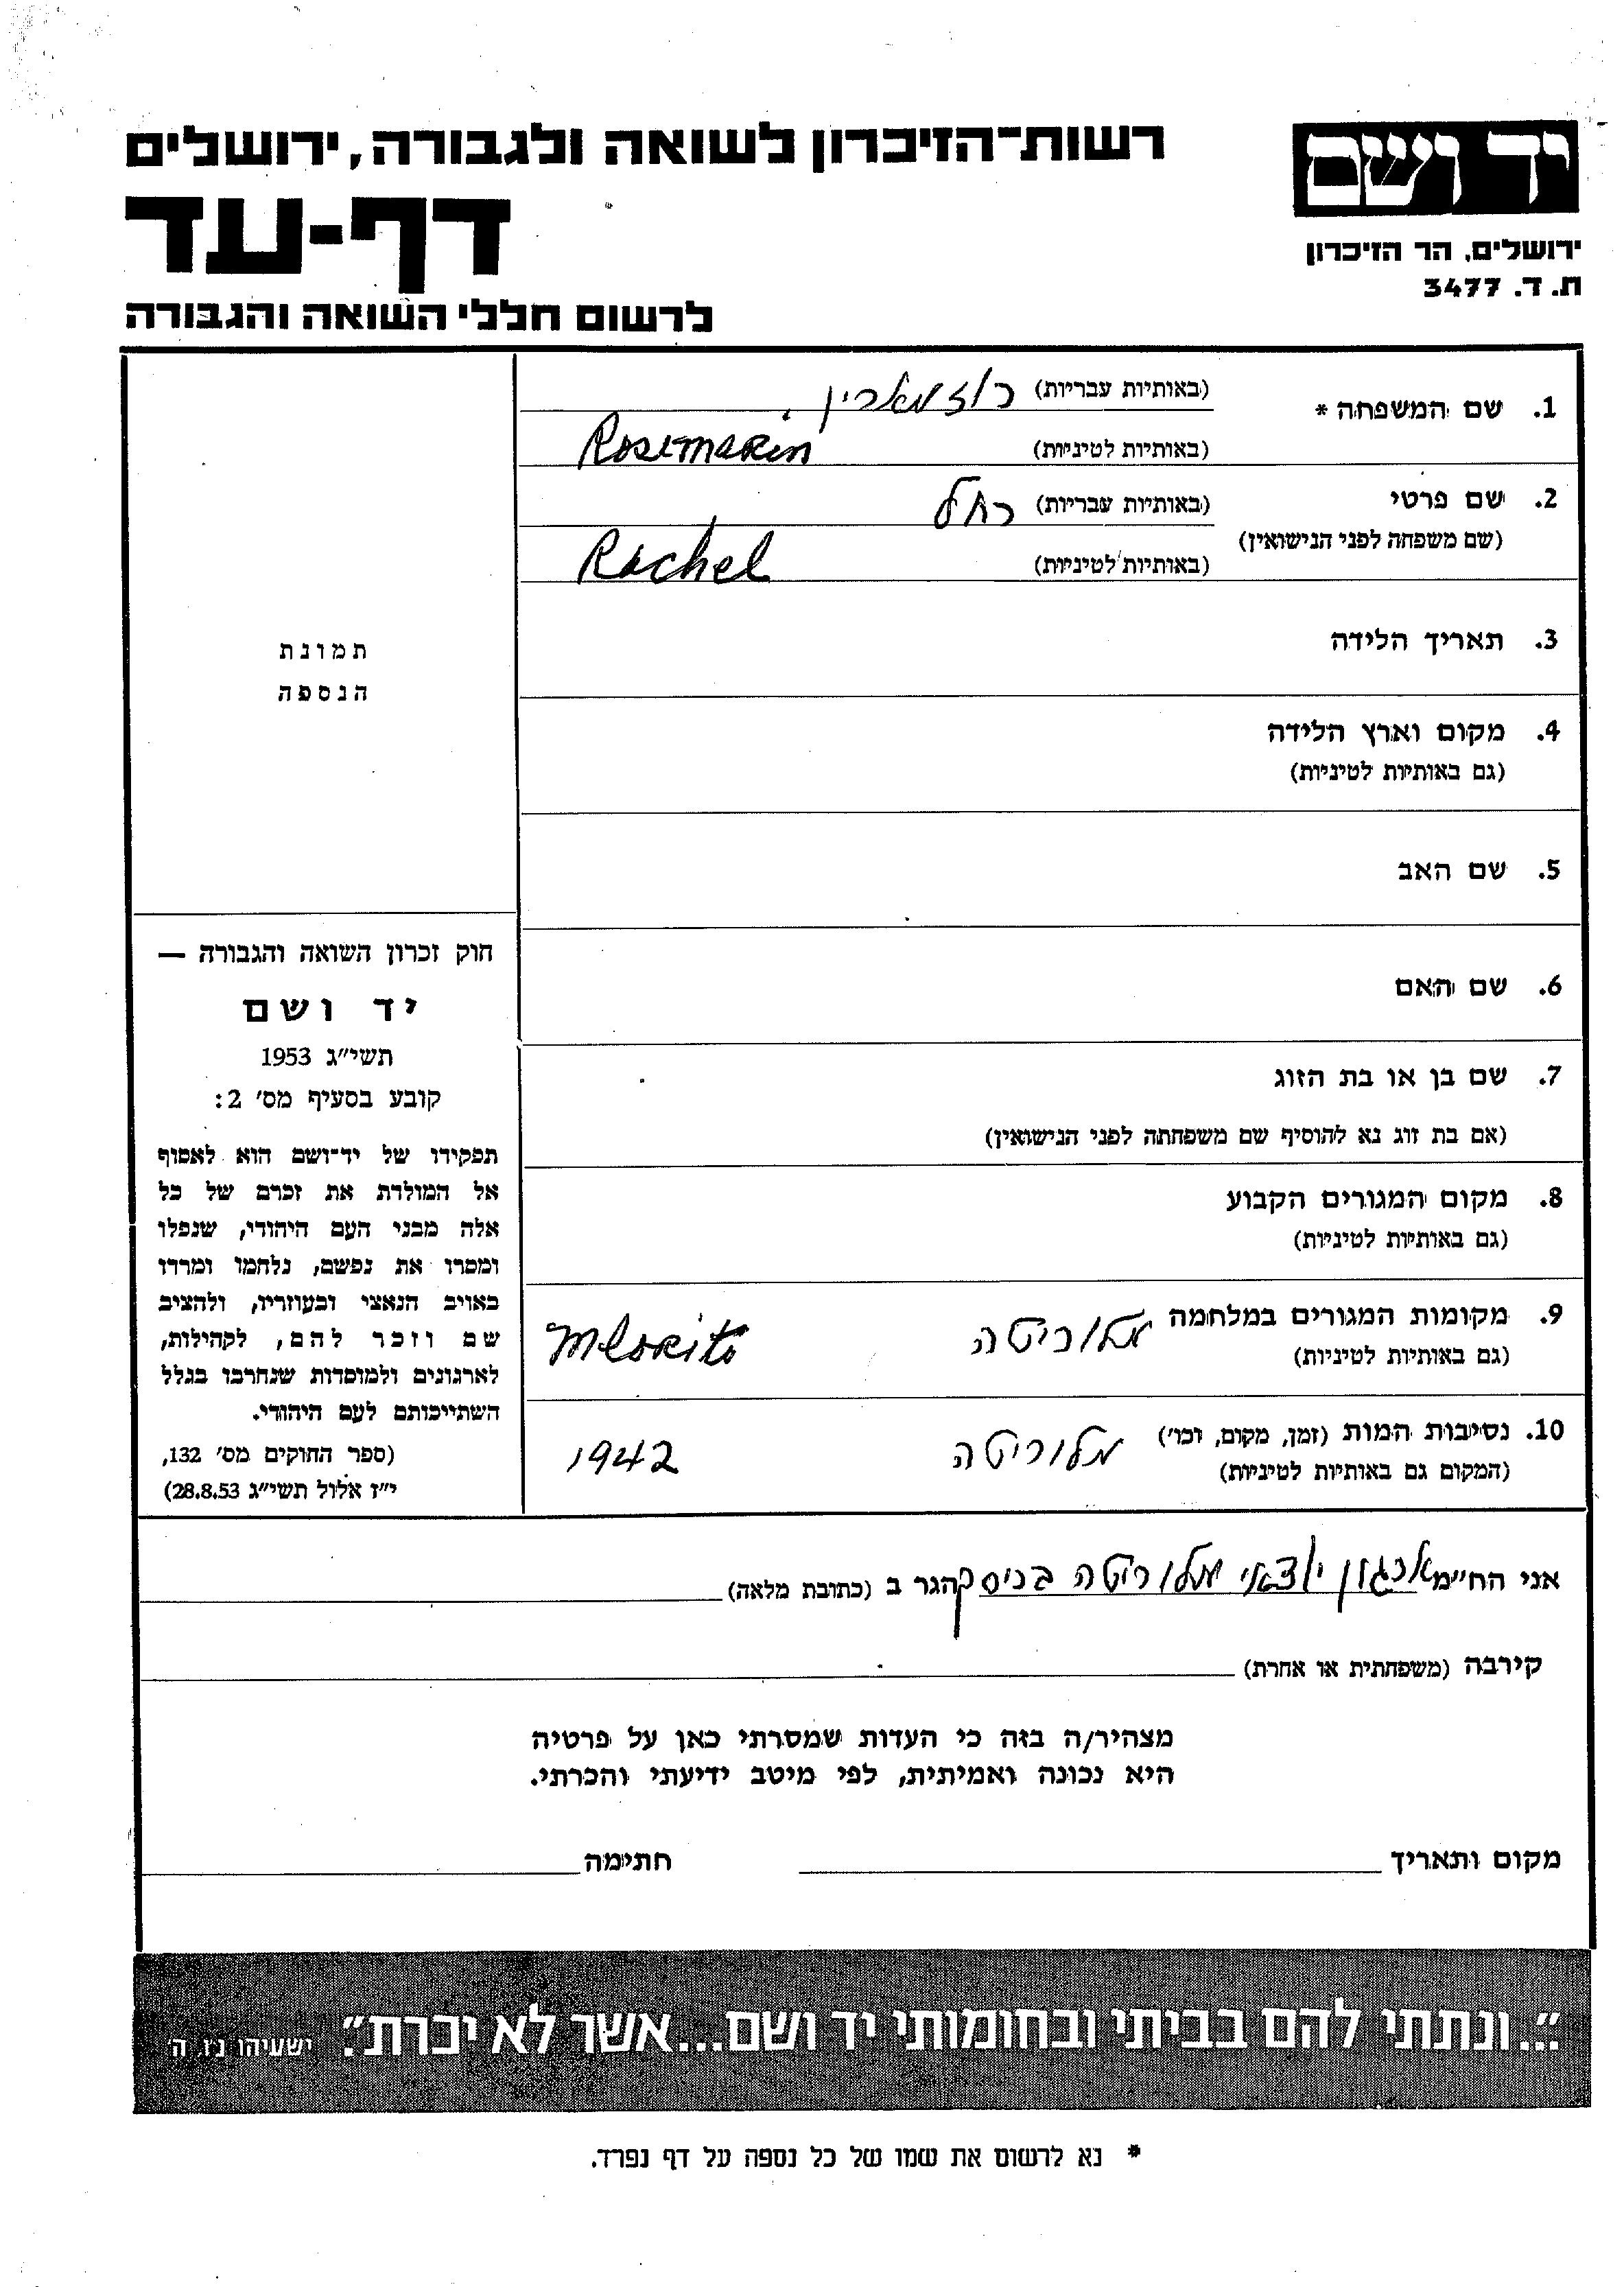 רשות-הזיכרון לשואה ולגבורה, ירושלים
יד ושם
דף-עד
ירושלים, הר הזיכרון
ת. ד. 3477
לרשום חללי השואה והגבורה
1. שם המשפחה * (באותיות עבריות) רוזמארין.
(באותיות לטיניות) Rosemarin
2. שם פרטי (באותיות עבריות) רחל
(שם משפחה לפני הנישואין)
(באותיות לטיניות) Rachel
3. תאריך הלידה
תמונת
הנספה
4. מקום וארץ הלידה
(גם באותיות לטיניות)
5. שם האב
6. שם האם
7. שם בן או בת הזוג
(אם בת זוג נא להוסיף שם משפחתה לפני הנישואין)
8. מקום המגורים הקבוע
(גם באותיות לטיניות)
9. מקומות המגורים במלחמה מלוריטה Mlorita
(גם באותיות לטיניות)
10. נסיבות המות (זמן, מקום, וכו') מלוריטה 1942
(המקום גם באותיות לטיניות)
חוק זכרון השואה והגבורה —
יד ושם
תשי"ג 1953
קובע בסעיף מס' 2:
תפקידו של יד-ושם הוא לאסוף
אל המולדת את זכרם של כל
אלה מבני העם היהודי, שנפלו
ומסרו את נפשם, נלחמו ומרדו
באויב הנאצי ובעוזריו, ולהציב
שם וזכר להם, לקהילות,
לארגונים ולמוסדות שנחרבו בגלל
השתייכותם לעם היהודי.
(ספר החוקים מס' 132,
י"ז אלול תשי"ג 28.8.53)
אני הח"מ ארגון יוצאי מלוריטה בריסק הגר ב (כתובת מלאה)
קירבה (משפחתית או אחרת)
מצהיר/ה בזה כי העדות שמסרתי כאן על פרטיה
היא נכונה ואמיתית, לפי מיטב ידיעתי והכרתי.
מקום ותאריך חתימה
"...ונתתי להם בביתי ובחומותי יד ושם...אשר לא יכרת". ישעיהו נ"ו ה'
* נא לרשום את שמו של כל נספה על דף נפרד.